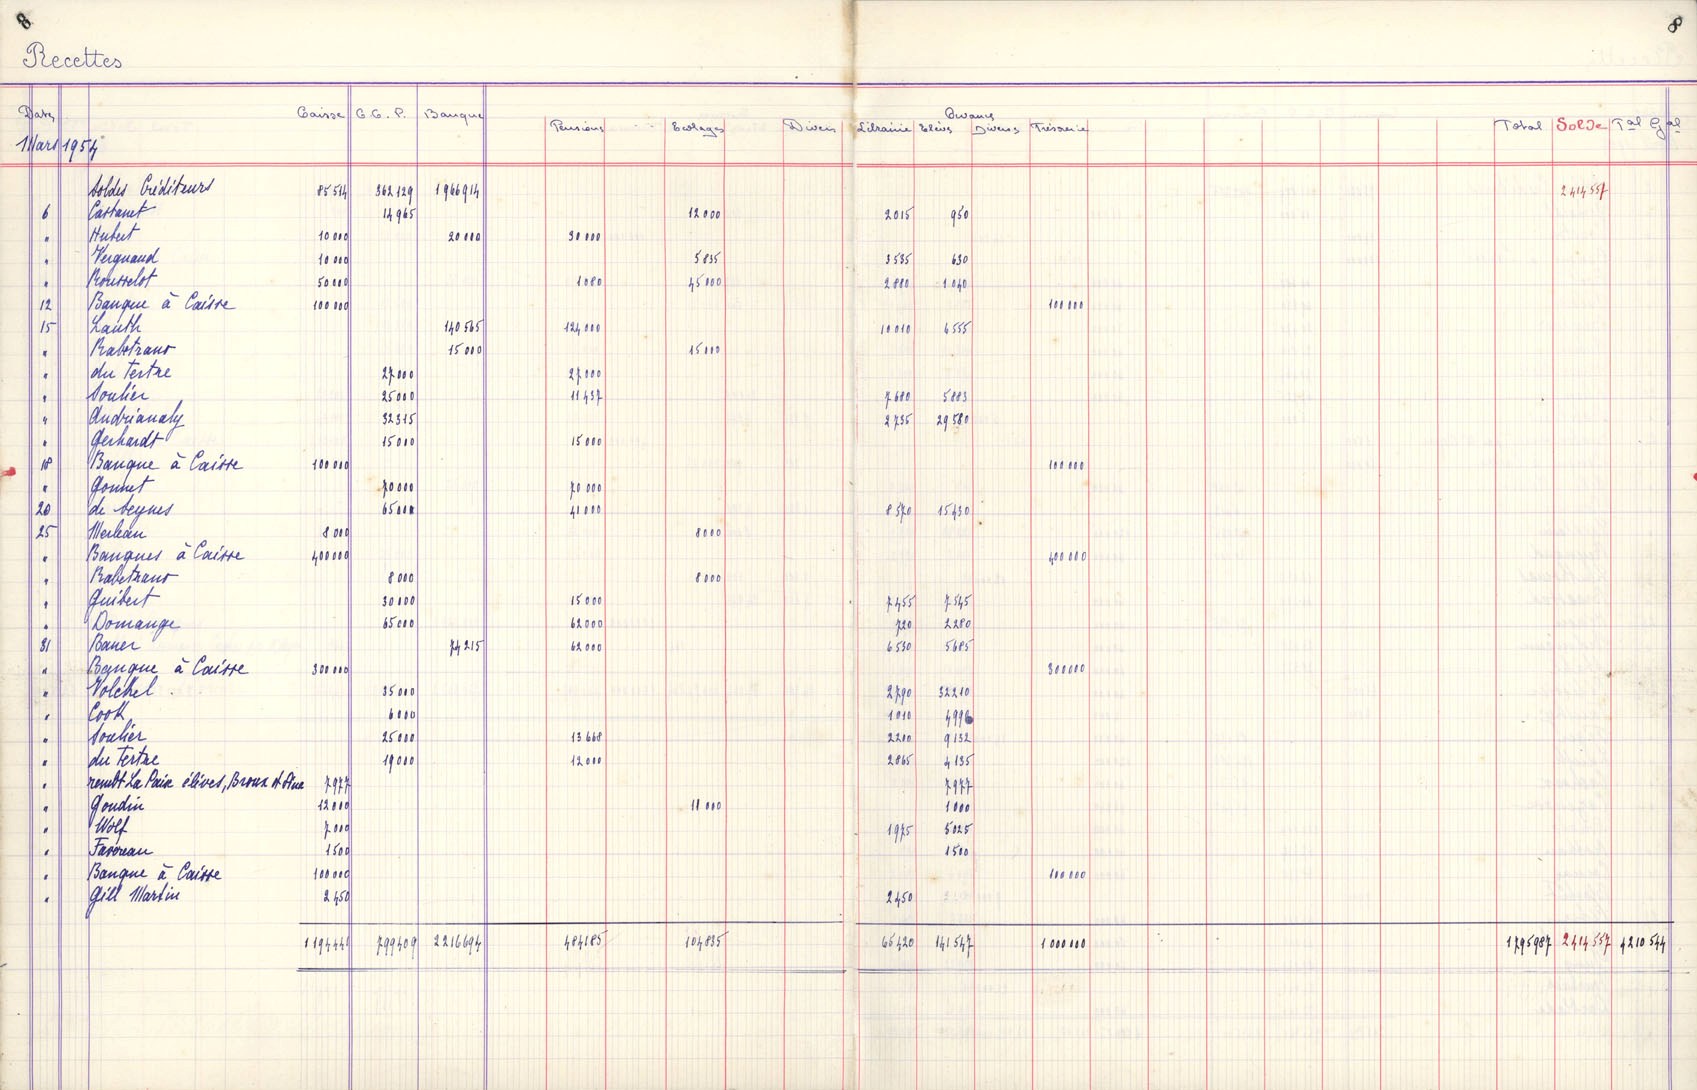 8 8
Recettes
Dates Caisse C.C.P. Banque Pensions Ecolages Divers Librairie Elèves Divers Divers Trésorerie Total Solde Tal Gal
Mars 1954
Soldes Créditeurs 85514 362129 1966914 2414557
6 Castanet 14965 12000 2015 950
" Hubert 10000 20000 30000
" Vergnaud 10000 5835 3535 630
" Rousselot 50000 1080 45000 2880 1040
12 Banque à Caisse 100000 100000
15 Lauth 140565 124000 10010 6555
" Rabetrano 15000 15000
" du Tertre 27000 27000
" Soulier 25000 11437 7680 5883
" Andrianaly 32315 2735 29580
" Gerhardt 15000 15000
18 Banque à Caisse 100000 100000
" Gonnet 70000 70000
20 de Seynes 65000 41000 8570 15430
25 Merleau 8000 8000
" Banques à Caisse 400000 400000
" Rabetrano 8000 8000
" Guibert 30000 15000 7455 7545
" Domange 65000 62000 720 2280
31 Bauer 74215 62000 6530 5685
" Banque à Caisse 300000 300000
" Volckel 35000 2790 32210
" Cook 6000 1010 4990
" Soulier 25000 13668 2200 9132
" du Tertre 19000 12000 2865 4135
" rembt La Paix élèves, 7977 7977
" Goudin 12000 11000 1000
" Wolf 7000 1975 5025
" Favereau 1500 1500
" Banque à Caisse 100000 100000
" Gill Martin 2450 2450
1194441 799409 2216694 484185 104835 65420 141547 1000000 1795987 2414557 4210544